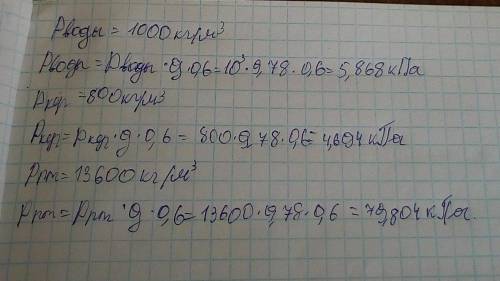 Pводы = 1000 кг/м³
Pводы = Pводы · g · 0,6 = 10³ · 9,78 · 0,6 = 5,868 кПа
Pкер = 800 кг/м³
Pкер = Pкер · g · 0,6 = 800 · 9,78 · 0,6 = 4,694 кПа
Pрт = 13600 кг/м³
Pрт = Pрт · g · 0,6 = 13600 · 9,78 · 0,6 = 79,804 кПа.